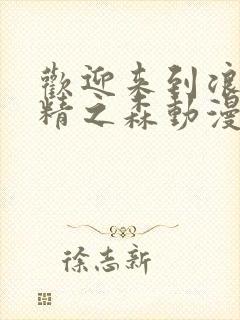 歡迎来到浪
精之森動漫
徐志新